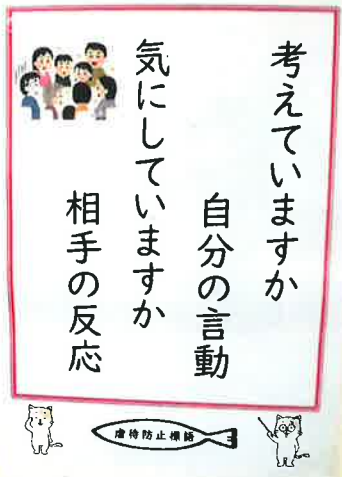 考えていますか
自分の言動
気にしていますか
相手の反応
虐待防止標語